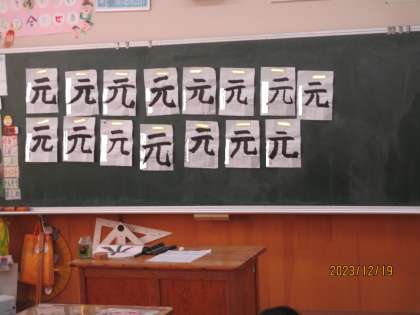 元 元 元 元 元 元 元 元
元 元 元 元 元 元 元
2023/12/19